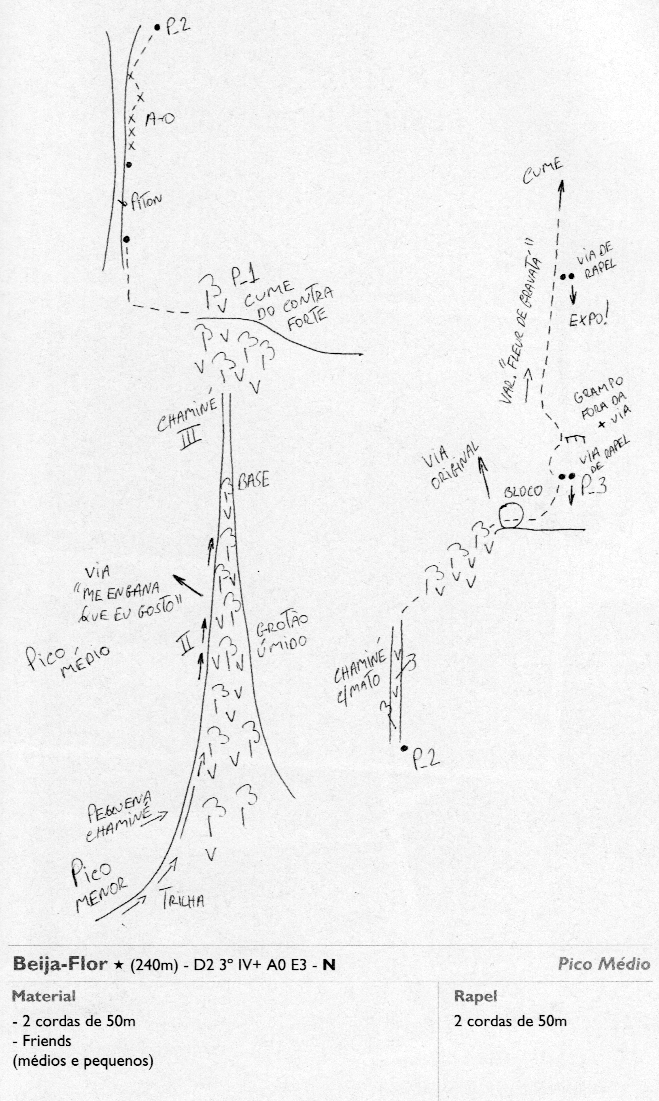 P_2
A0
PITON
P_1
CUME
DO CONTRA
FORTE
CHAMINÉ
III
BASE
VIA
"ME ENGANA
QUE EU GOSTO"
II
GROTÃO
ÚMIDO
PICO
MÉDIO
PEQUENA
CHAMINÉ
PICO
MENOR
TRILHA
CUME
VIA DE
RAPEL
EXPO!
VAR. "FLEUR DE GRAVATÁ"
GRAMPO
FORA DA
VIA
VIA
DE RAPEL
P_3
VIA
ORIGINAL
BLOCO
CHAMINÉ
C/MATO
P_2
Beija-Flor ★ (240m) - D2 3º IV+ A0 E3 - N
Pico Médio
Material
- 2 cordas de 50m
- Friends
(médios e pequenos)
Rapel
2 cordas de 50m